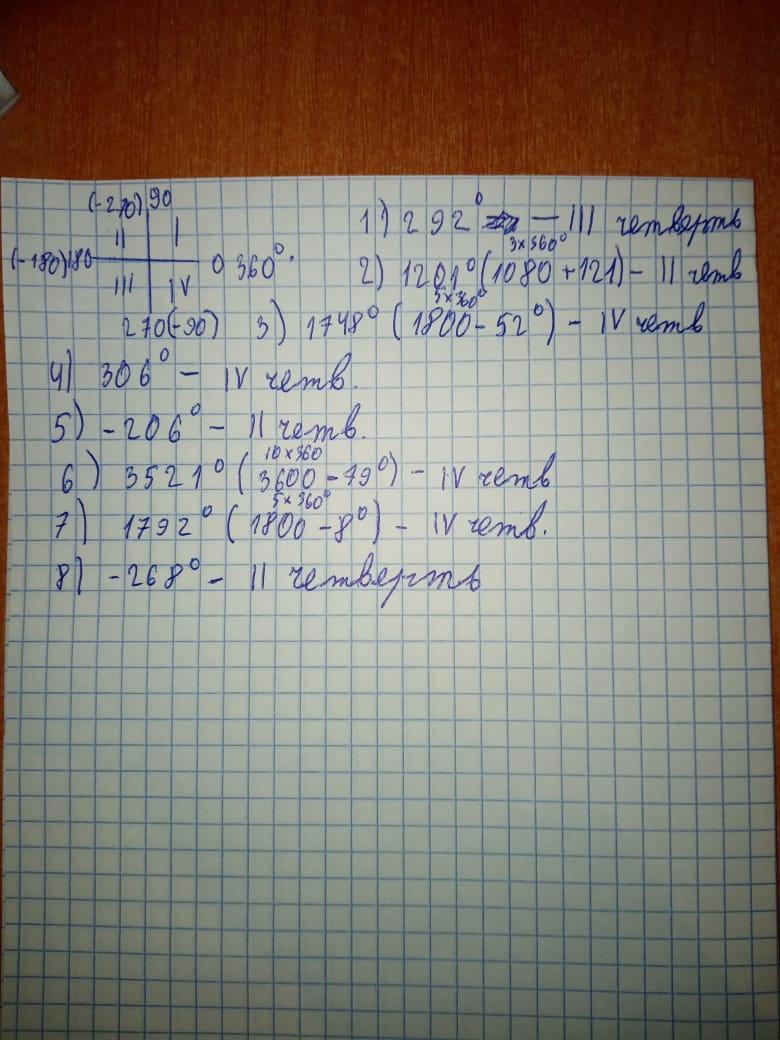 (-270) 90
II I
(-180) 180 0 360°.
III IV
270(-90)
1) 292° — III четверть
3×360°
2) 1201° (1080 + 121) – II четв
5×360°
3) 1748° (1800 - 52°) – IV четв
4) 306° – IV четв.
5) -206° – II четв.
10×360
6) 3521° (3600 - 79°) – IV четв
5×360°
7) 1792° (1800 - 8°) – IV четв.
8) -268° – II четверть